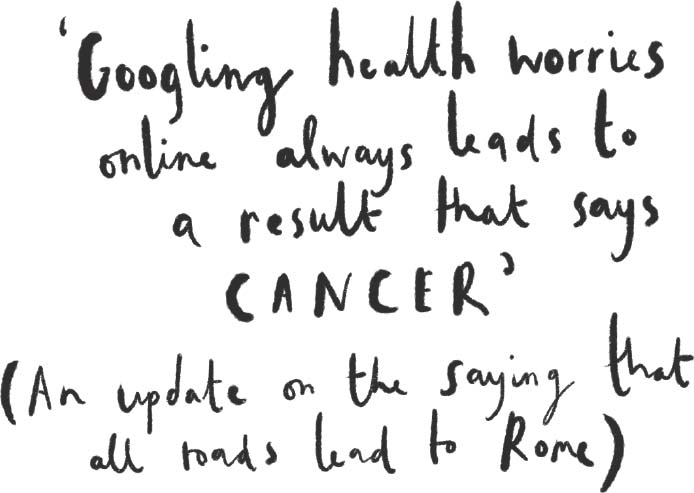 'Googling health worries
online always leads to
a result that says
CANCER'
(An update on the saying that
all roads lead to Rome)